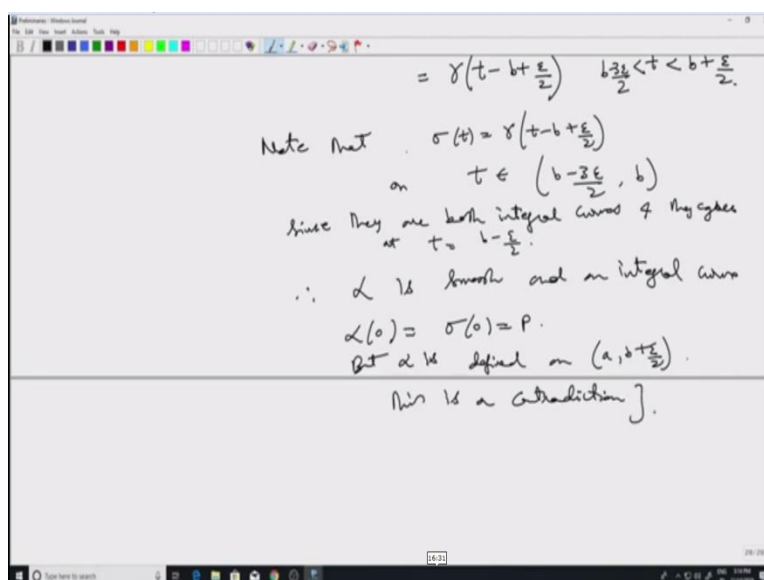 Preliminaries - Windows Journal
File Edit View Insert Actions Tools Help
= γ(t-b+ε/2) b-3ε/2 < t < b+ε/2.
Note that σ(t) = γ(t-b+ε/2)
on t ∈ (b-3ε/2, b)
Since they are both integral curves & they agree
at t = b-ε/2.
∴ α is smooth and an integral curve
α(0) = σ(0) = P.
But α is defined on (a, b+ε/2).
This is a contradiction].
16:31
28/28
Type here to search
ENG